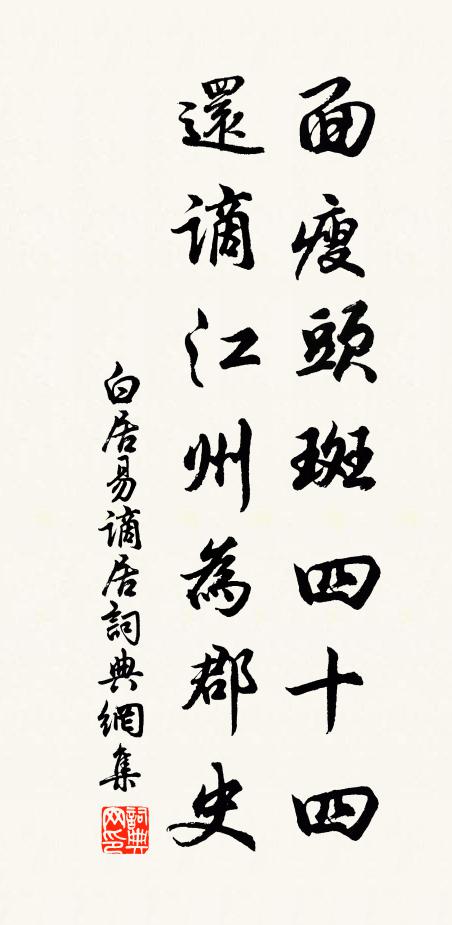 面瘦頭斑四十四
還謫江州為郡史
白居易謫居詞典網集
詞典
网印